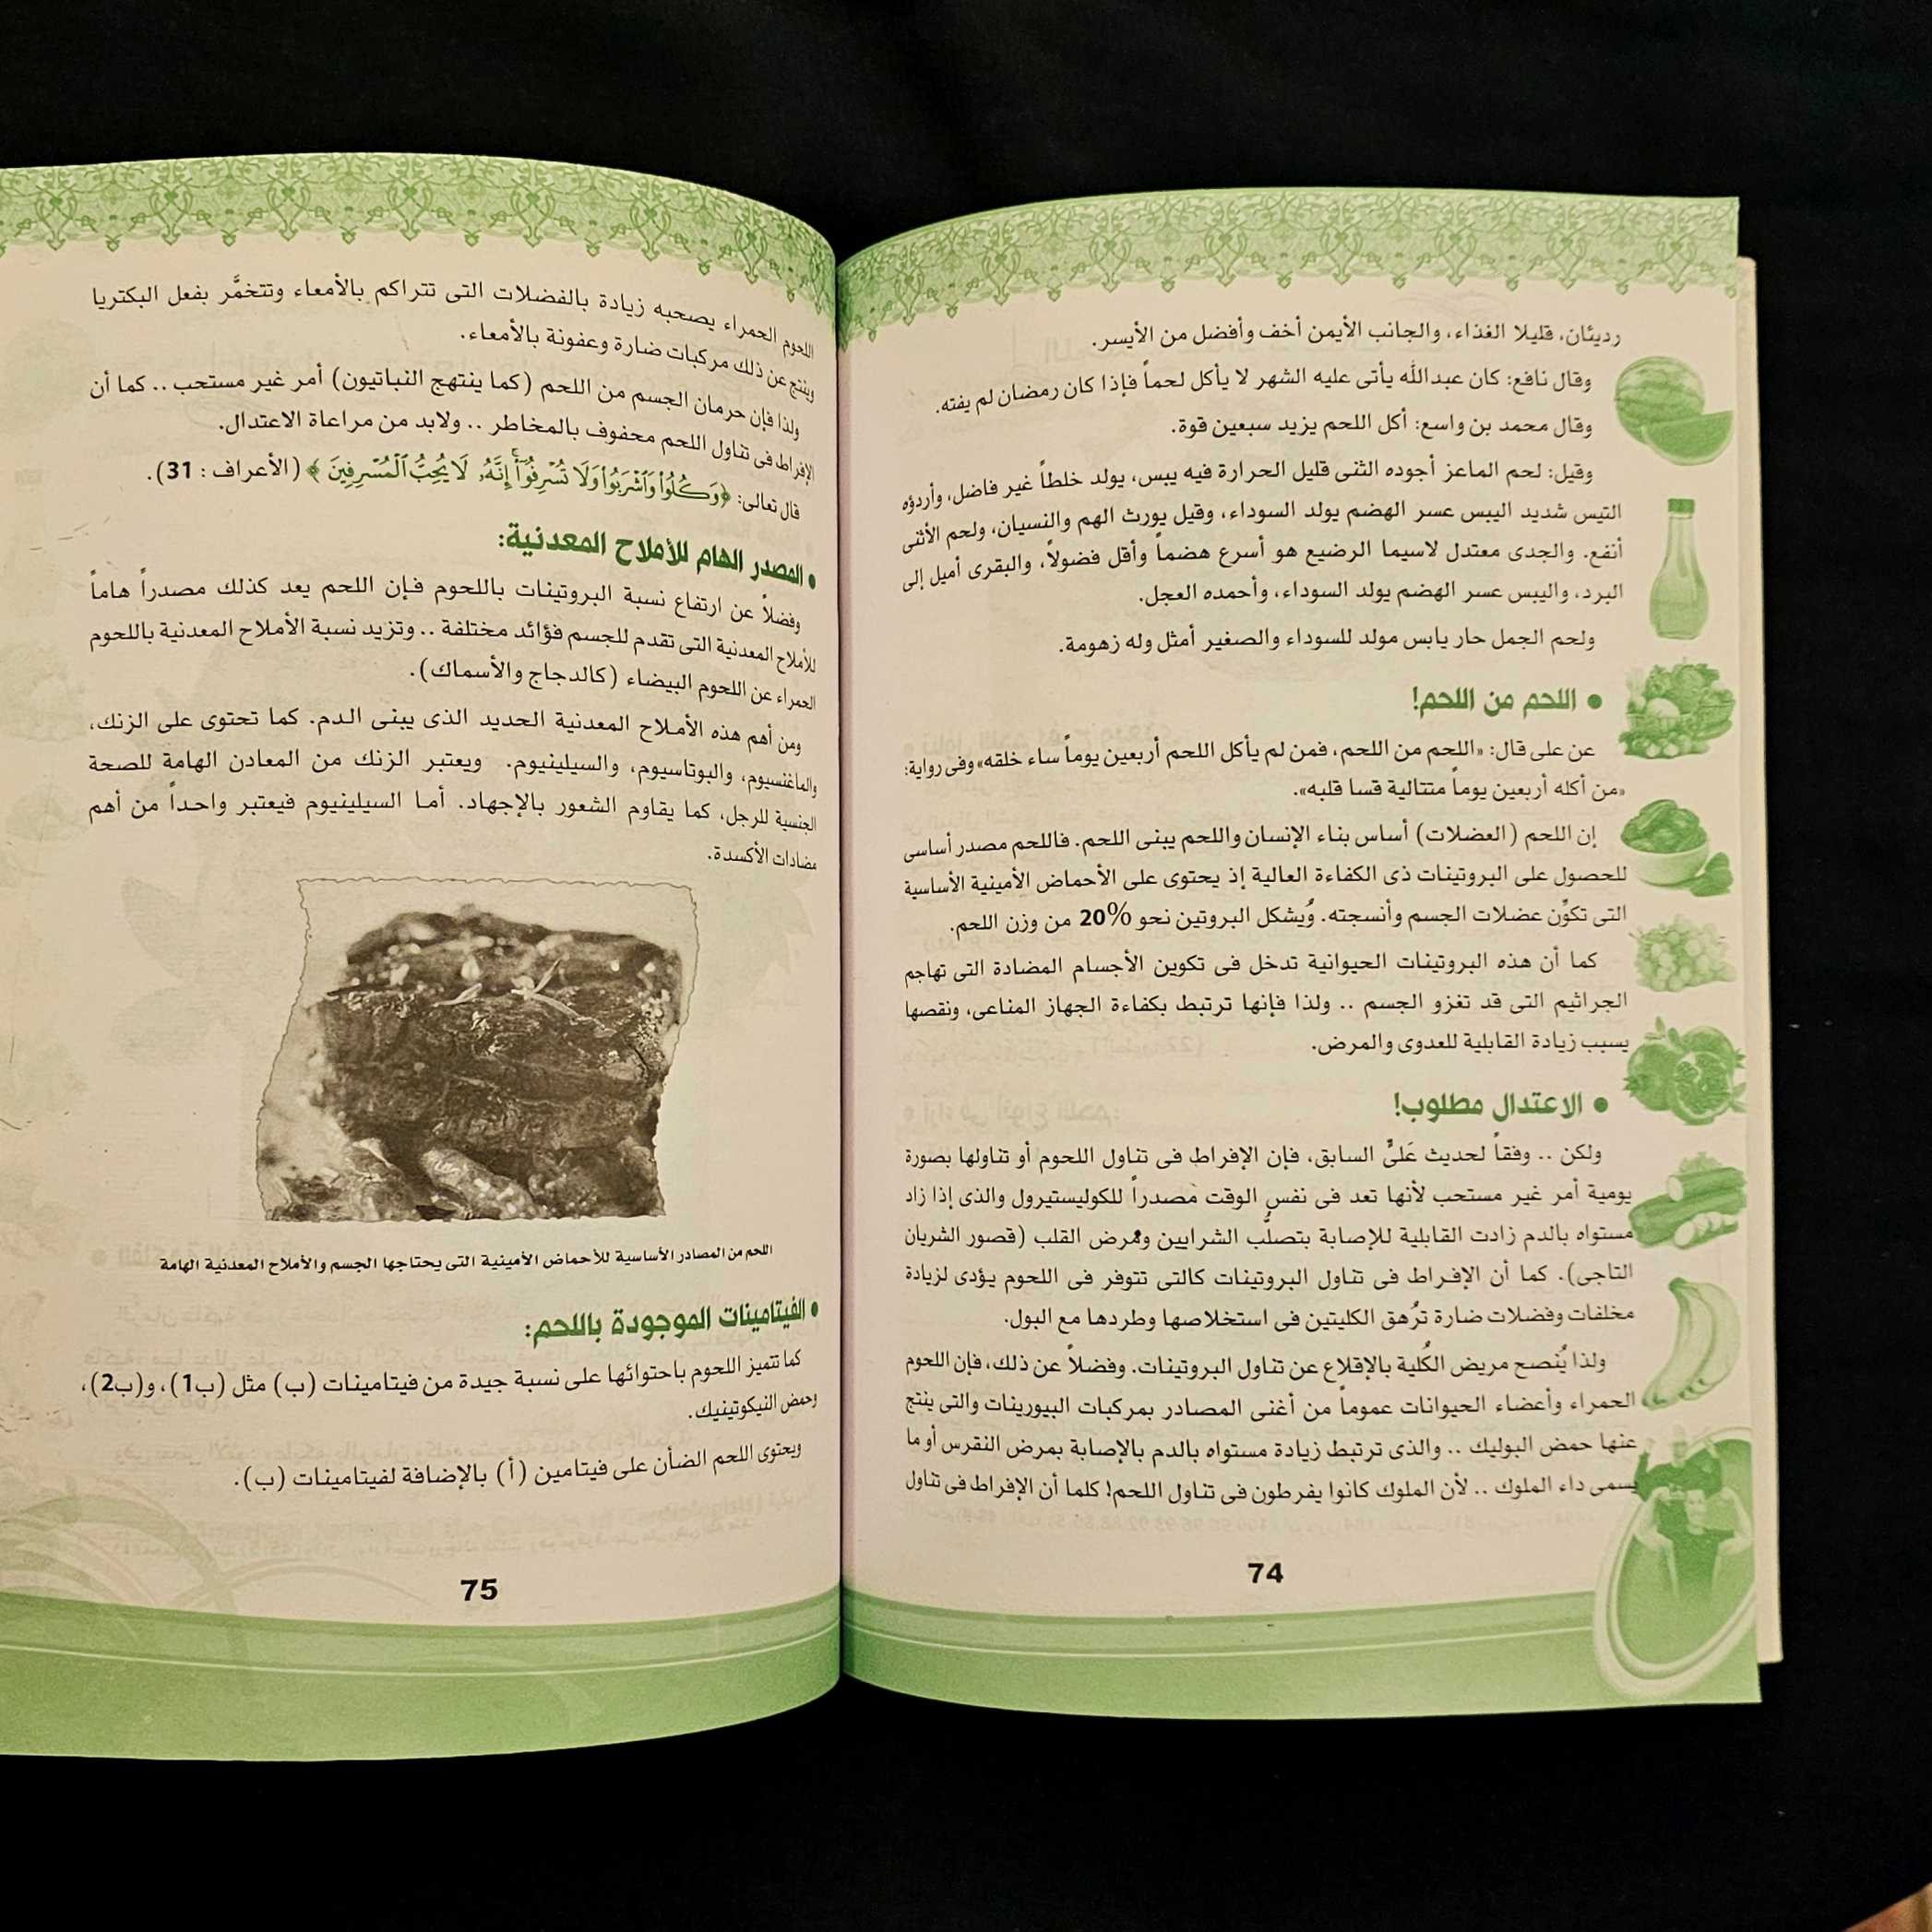 رديئان، قليلا الغذاء، والجانب الأيمن أخف وأفضل من الأيسر.
وقال نافع: كان عبدالله يأتى عليه الشهر لا يأكل لحماً فإذا كان رمضان لم يفته.
وقال محمد بن واسع: أكل اللحم يزيد سبعين قوة.
وقيل: لحم الماعز أجوده الثنى قليل الحرارة فيه يبس، يولد خلطاً غير فاضل، وأردؤه
التيس شديد اليبس عسر الهضم يولد السوداء، وقيل يورث الهم والنسيان، ولحم الأنثى
أنفع. والجدى معتدل لاسيما الرضيع هو أسرع هضماً وأقل فضولاً، والبقرى أميل إلى
البرد، واليبس عسر الهضم يولد السوداء، وأحمده العجل.
ولحم الجمل حار يابس مولد للسوداء والصغير أمثل وله زهومة.
• اللحم من اللحم!
عن على قال: «اللحم من اللحم، فمن لم يأكل اللحم أربعين يوماً ساء خلقه» وفى رواية:
«من أكله أربعين يوماً متتالية قسا قلبه».
إن اللحم (العضلات) أساس بناء الإنسان واللحم يبنى اللحم. فاللحم مصدر أساسى
للحصول على البروتينات ذى الكفاءة العالية إذ يحتوى على الأحماض الأمينية الأساسية
التى تكوِّن عضلات الجسم وأنسجته. وُيشكل البروتين نحو 20% من وزن اللحم.
كما أن هذه البروتينات الحيوانية تدخل فى تكوين الأجسام المضادة التى تهاجم
الجراثيم التى قد تغزو الجسم .. ولذا فإنها ترتبط بكفاءة الجهاز المناعى، ونقصها
يسبب زيادة القابلية للعدوى والمرض.
• الاعتدال مطلوب!
ولكن .. وفقاً لحديث عَلىٍّ السابق، فإن الإفراط فى تناول اللحوم أو تناولها بصورة
يومية أمر غير مستحب لأنها تعد فى نفس الوقت مصدراً للكوليستيرول والذى إذا زاد
مستواه بالدم زادت القابلية للإصابة بتصلُّب الشرايين ومرض القلب (قصور الشريان
التاجى). كما أن الإفراط فى تناول البروتينات كالتى تتوفر فى اللحوم يؤدى لزيادة
مخلفات وفضلات ضارة تُرهق الكليتين فى استخلاصها وطردها مع البول.
ولذا يُنصح مريض الكُلية بالإقلاع عن تناول البروتينات. وفضلاً عن ذلك، فإن اللحوم
الحمراء وأعضاء الحيوانات عموماً من أغنى المصادر بمركبات البيورينات والتى ينتج
عنها حمض البوليك .. والذى ترتبط زيادة مستواه بالدم بالإصابة بمرض النقرس أو ما
يسمى داء الملوك .. لأن الملوك كانوا يفرطون فى تناول اللحم! كلما أن الإفراط فى تناول
74
اللحوم الحمراء يصحبه زيادة بالفضلات التى تتراكم بالأمعاء وتتخمَّر بفعل البكتريا
وينتج عن ذلك مركبات ضارة وعفونة بالأمعاء.
ولذا فإن حرمان الجسم من اللحم (كما ينتهج النباتيون) أمر غير مستحب .. كما أن
الإفراط فى تناول اللحم محفوف بالمخاطر .. ولابد من مراعاة الاعتدال.
قال تعالى: ﴿وَكُلُوا۟ وَٱشْرَبُوا۟ وَلَا تُسْرِفُوٓا۟ إِنَّهُۥ لَا يُحِبُّ ٱلْمُسْرِفِينَ﴾ (الأعراف : 31).
• المصدر الهام للأملاح المعدنية:
وفضلاً عن ارتفاع نسبة البروتينات باللحوم فإن اللحم يعد كذلك مصدراً هاماً
للأملاح المعدنية التى تقدم للجسم فؤائد مختلفة .. وتزيد نسبة الأملاح المعدنية باللحوم
الحمراء عن اللحوم البيضاء (كالدجاج والأسماك).
ومن أهم هذه الأملاح المعدنية الحديد الذى يبنى الدم. كما تحتوى على الزنك،
والماغنسيوم، والبوتاسيوم، والسيلينيوم. ويعتبر الزنك من المعادن الهامة للصحة
الجنسية للرجل، كما يقاوم الشعور بالإجهاد. أما السيلينيوم فيعتبر واحداً من أهم
مضادات الأكسدة.
اللحم من المصادر الأساسية للأحماض الأمينية التى يحتاجها الجسم والأملاح المعدنية الهامة
• الفيتامينات الموجودة باللحم:
كما تتميز اللحوم باحتوائها على نسبة جيدة من فيتامينات (ب) مثل (ب1)، و(ب2)،
وحمض النيكوتينيك.
ويحتوى اللحم الضأن على فيتامين (أ) بالإضافة لفيتامينات (ب).
75